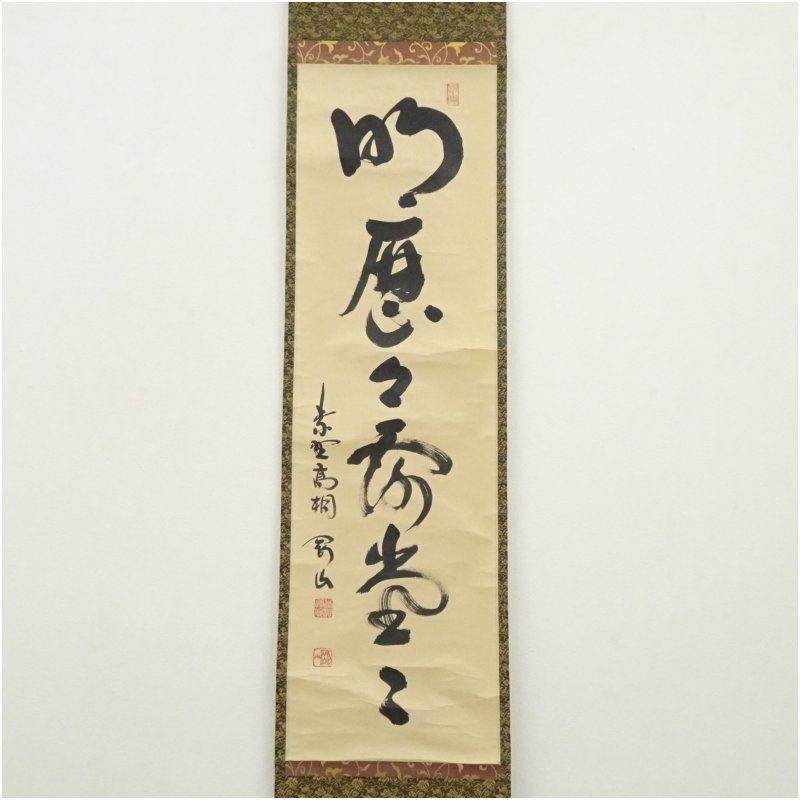 明歴々露堂々
紫野高桐 剛山